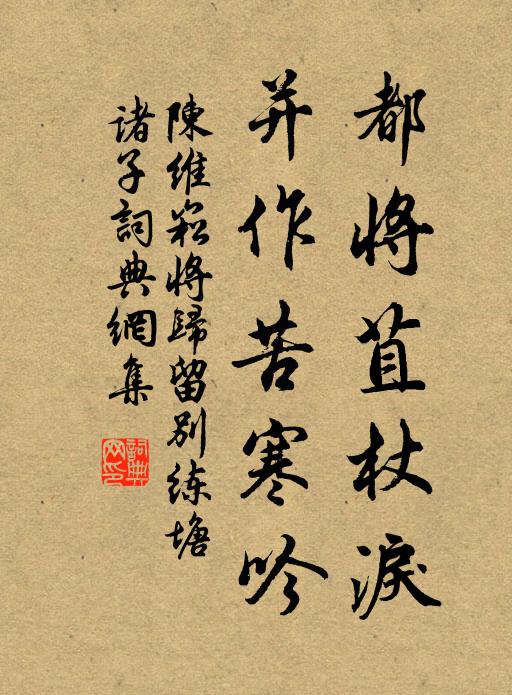 都将苴杖淚
并作苦寒吟
陳維崧将歸留别练塘
诸子詞典網集
詞典網印